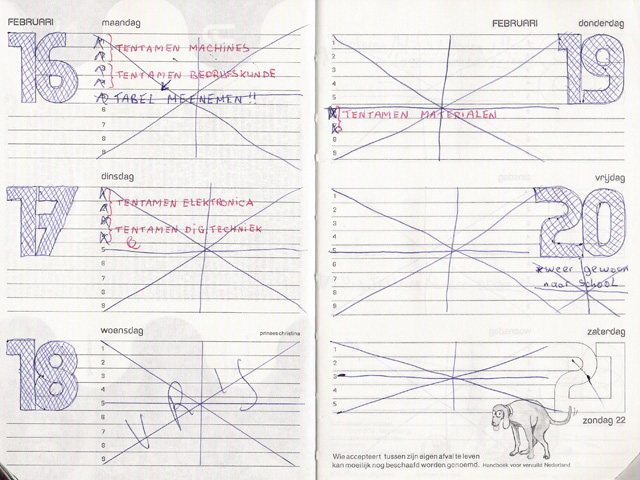 FEBRUARI maandag
16
TENTAMEN MACHINES
TENTAMEN BEDRIJFSKUNDE
TABEL MEENEMEN!!
6
7
8
9
dinsdag
17
TENTAMEN ELEKTRONICA
TENTAMEN DIG. TECHNIEK
5
6
7
8
9
woensdag prinses christina
18
1
2
3
4
5
6
7
8
9
VRIJ
FEBRUARI donderdag
19
1
2
3
4
5
TENTAMEN MATERIALEN
8
9
vrijdag
20
1
2
3
4
5
6
7
8
9
*weer gewoon
naar school
zaterdag
21
1
2
3
4
5
zondag 22
Wie accepteert tussen zijn eigen afval te leven
kan moeilijk nog beschaafd worden genoemd. Handboek voor vervuild Nederland